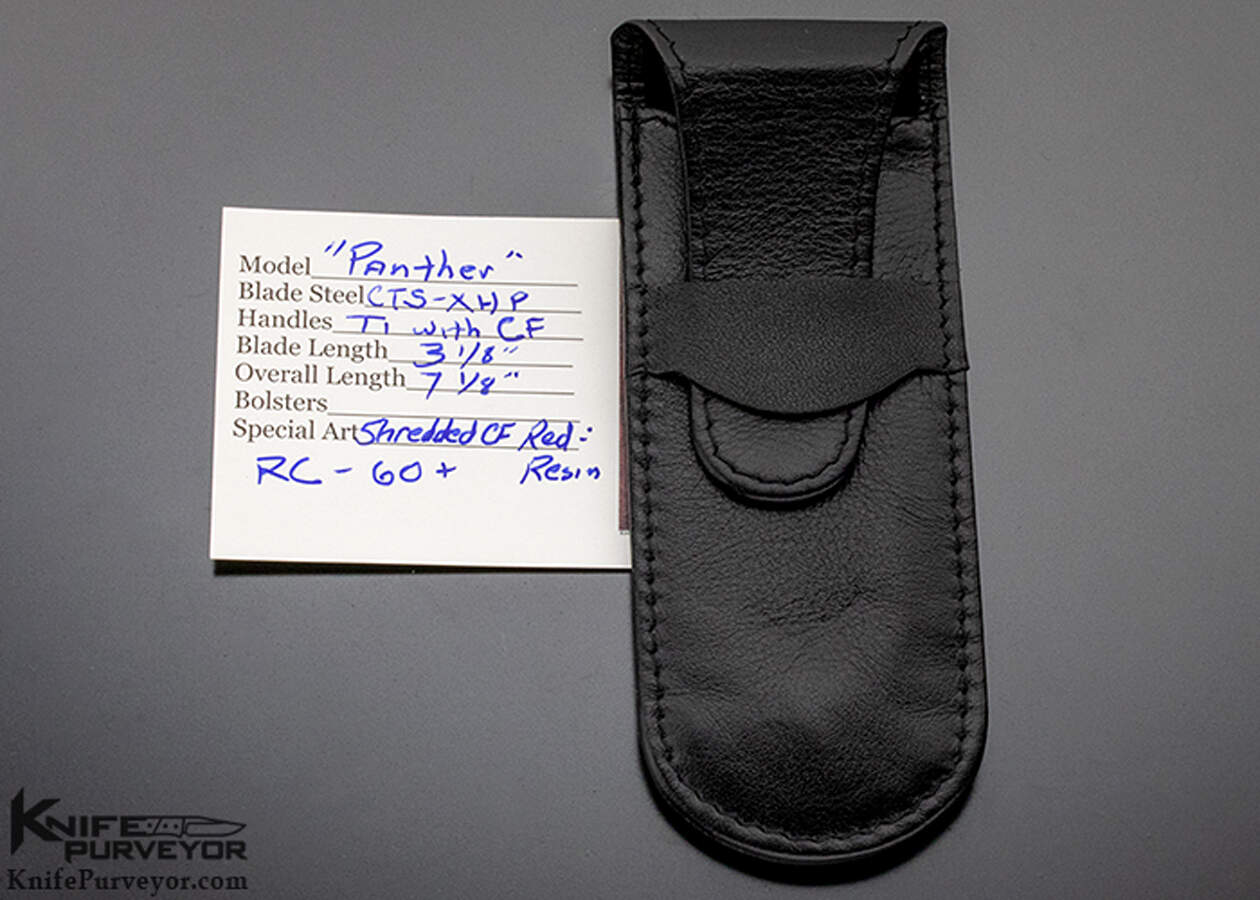 Model "Panther"
Blade Steel CTS-XHP
Handles Ti with CF
Blade Length 3 1/8"
Overall Length 7 1/8"
Bolsters
Special Art Shredded CF Red-
RC - 60+ Resin
KNIFE
PURVEYOR
KnifePurveyor.com